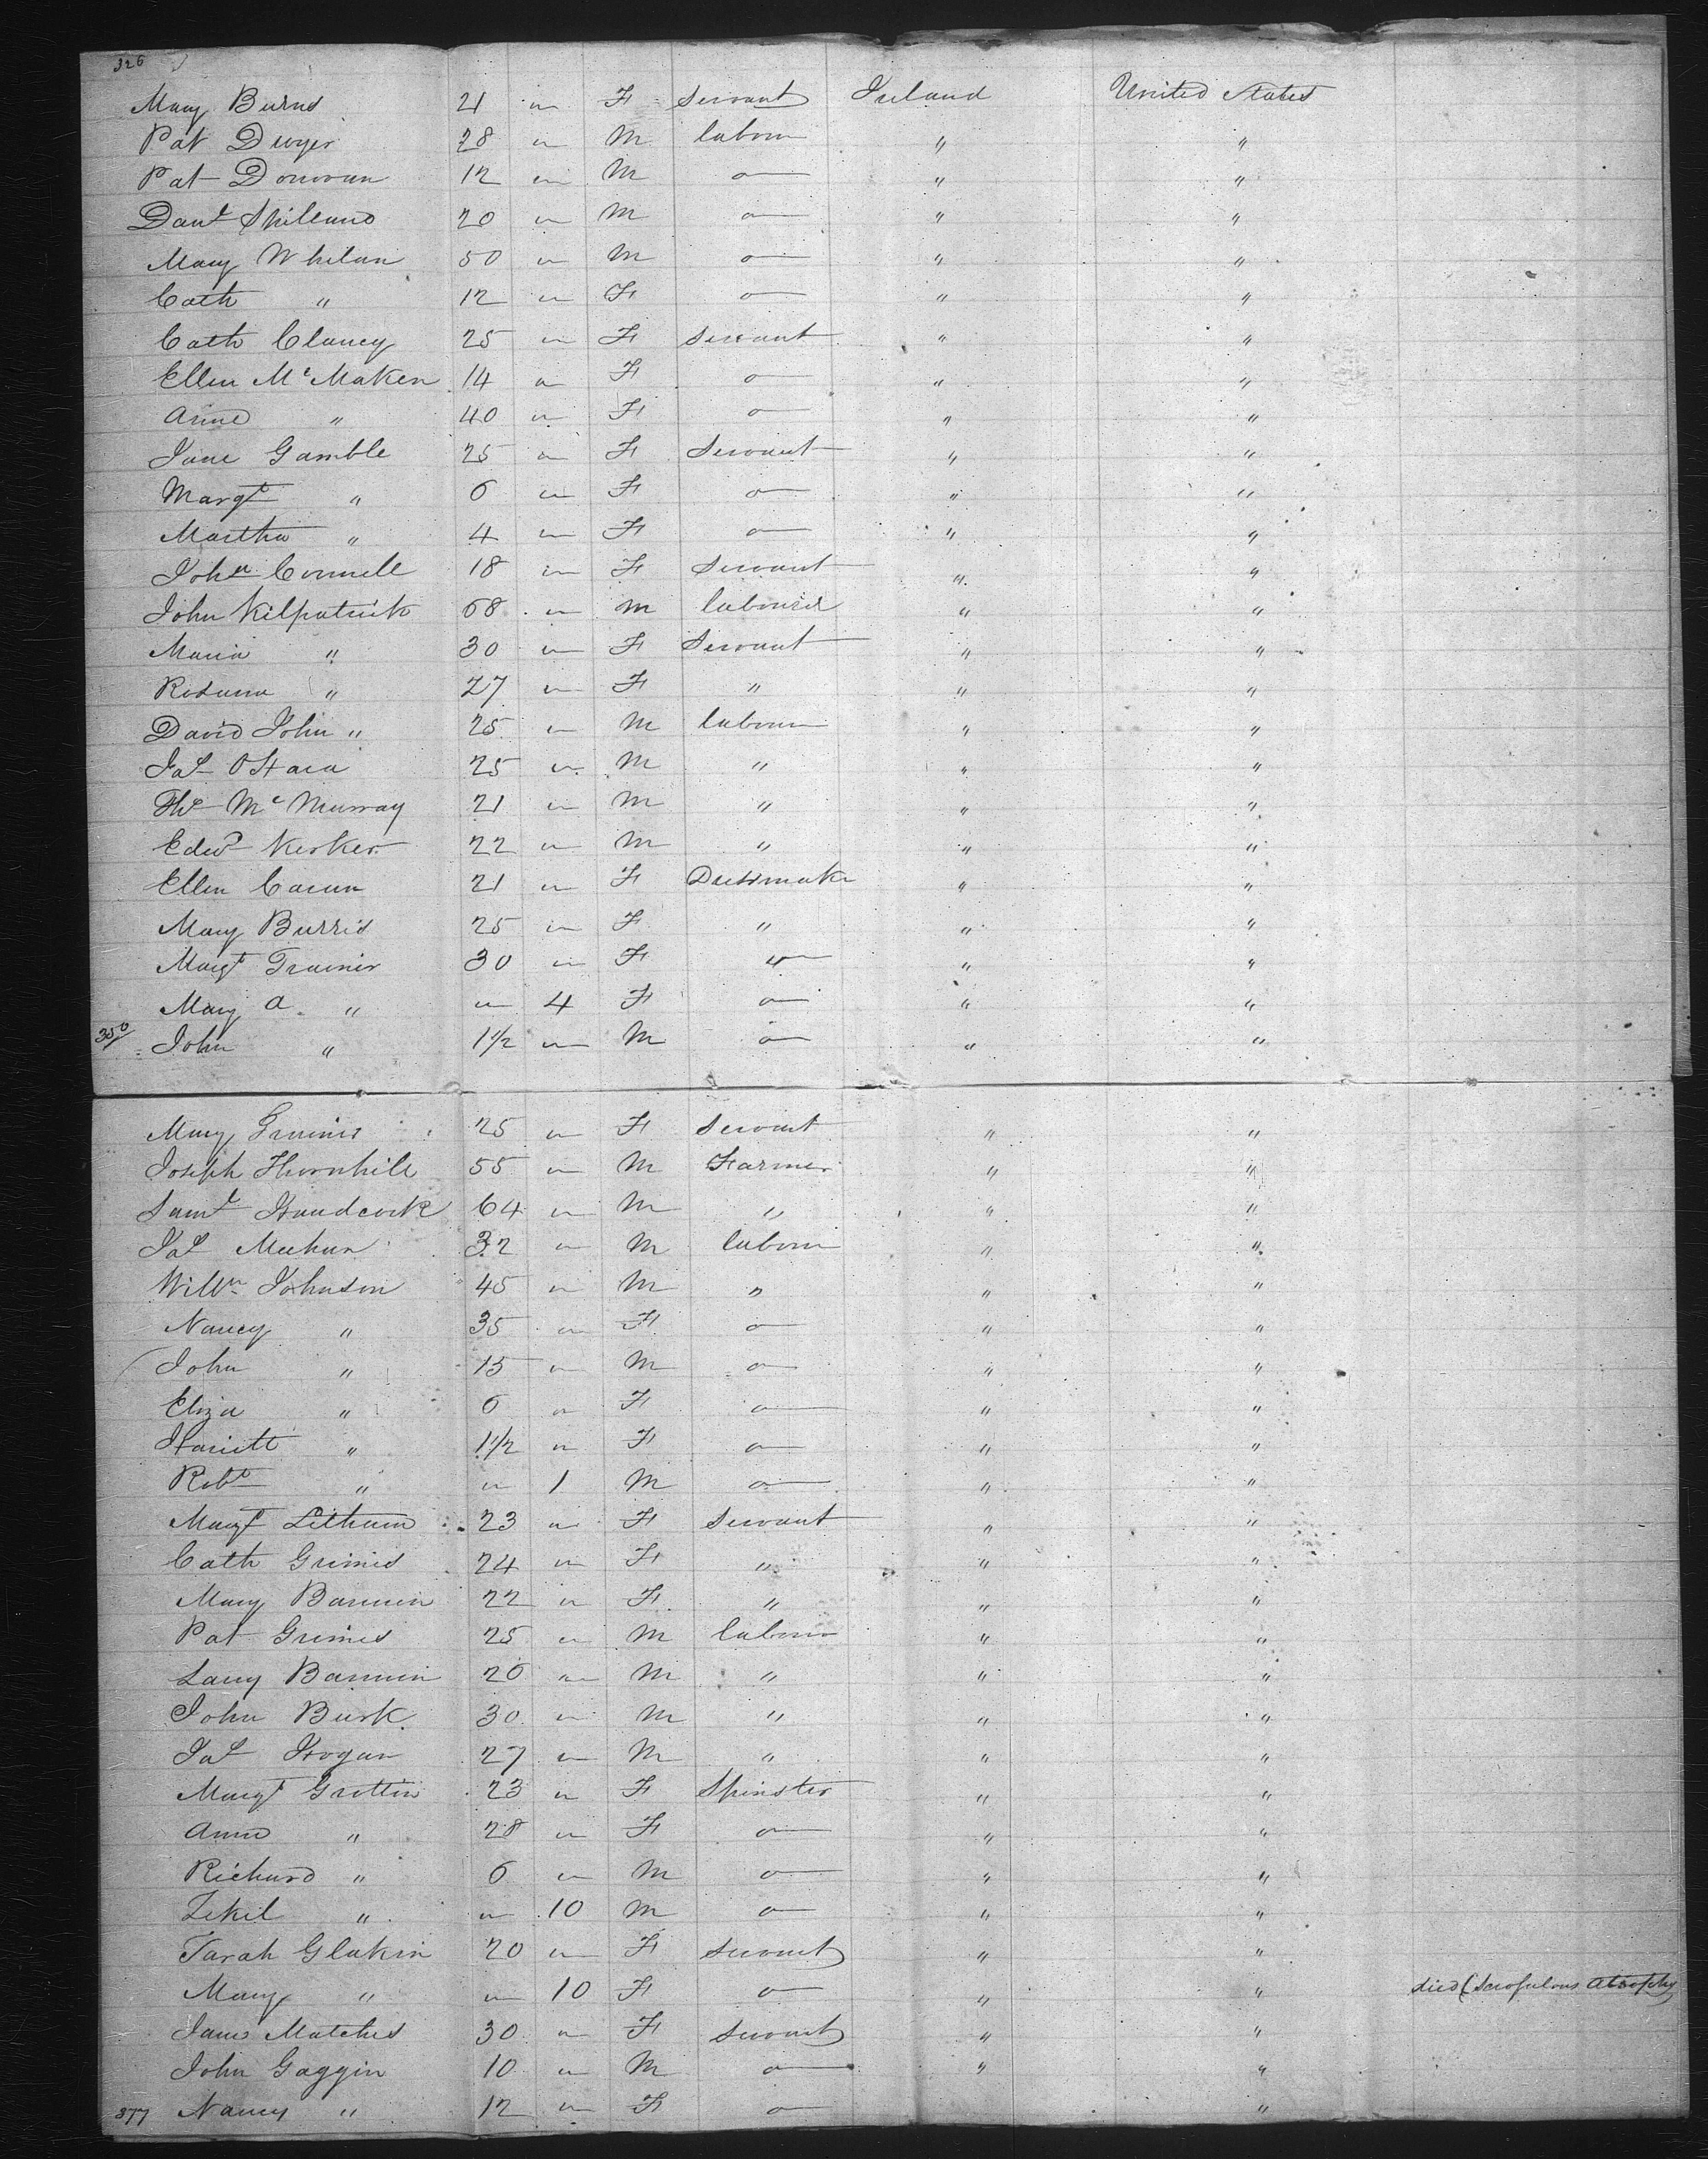 326
Mary Burns 21 " F servant Ireland United States
Pat Dwyer 28 " M labour " "
Pat Donovan 12 " M " "
Danl Shilland 20 " M " "
Mary Whelan 50 " M " "
Cath " 12 " F " "
Cath Clancy 25 " F servant " "
Ellen McMaken 14 " F " "
Anne " 40 " F " "
Jane Gamble 25 " F Servant " "
Margt " 6 " F " "
Martha " 4 " F " "
John Connell 18 " F Servant " "
John Kilpatrick 68 " M labourer " "
Maria " 30 " F Servant " "
Rosanna " 27 " F " " "
David John " 25 " M labour " "
Jas OHara 25 " M " " "
Ths McMurray 21 " M " " "
Edwd Kerker 22 " M " " "
Ellen 21 " F Dressmaker " "
Mary Burris 25 " F " " "
Margt Trainer 30 " F " "
Mary A. " " 4 F " "
350 John " 1½ " M " "
Mary 25 " F Servant " "
Joseph Thornhill 55 " M Farmer " "
Saml Handcock 64 " M " " "
Jas Meehan 32 " M labour " "
Willm Johnson 45 " M " " "
Nancy " 35 " F " "
John " 15 " M " "
Eliza " 6 " F " "
Hariett " 1½ " F " "
Robt " " 1 M " "
Margt Letham 23 " F Servant " "
Cath Grimes 24 " F " " "
Mary Bannin 22 " F " " "
Pat Grimes 25 " M labour " "
Larry Bannin 20 " M " " "
John Burk 30 " M " " "
Jas Hogan 27 " M " " "
Margt Grattin 23 " F Spinster " "
Anne " 28 " F " "
Richard " 6 " M " "
Zekil " " 10 M " "
Sarah Glakin 20 " F servant " "
Mary " " 10 F " " died (Scrofulous Atrophy)
Jane Matches 30 " F servant " "
John Gaggin 10 " M " "
377 Nancy " 12 " F "